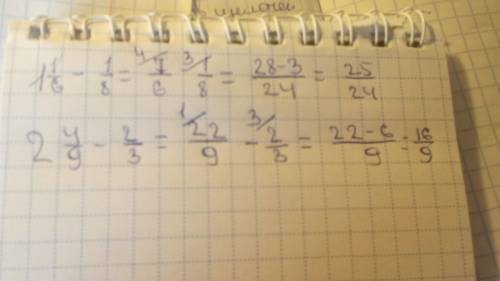 1 1/6 - 1/8 = 4/ 7/6 3/ 1/8 = 28-3/24 = 25/24
2 4/9 - 2/3 = 1/ 22/9 - 3/ 2/3 = 22-6/9 = 16/9